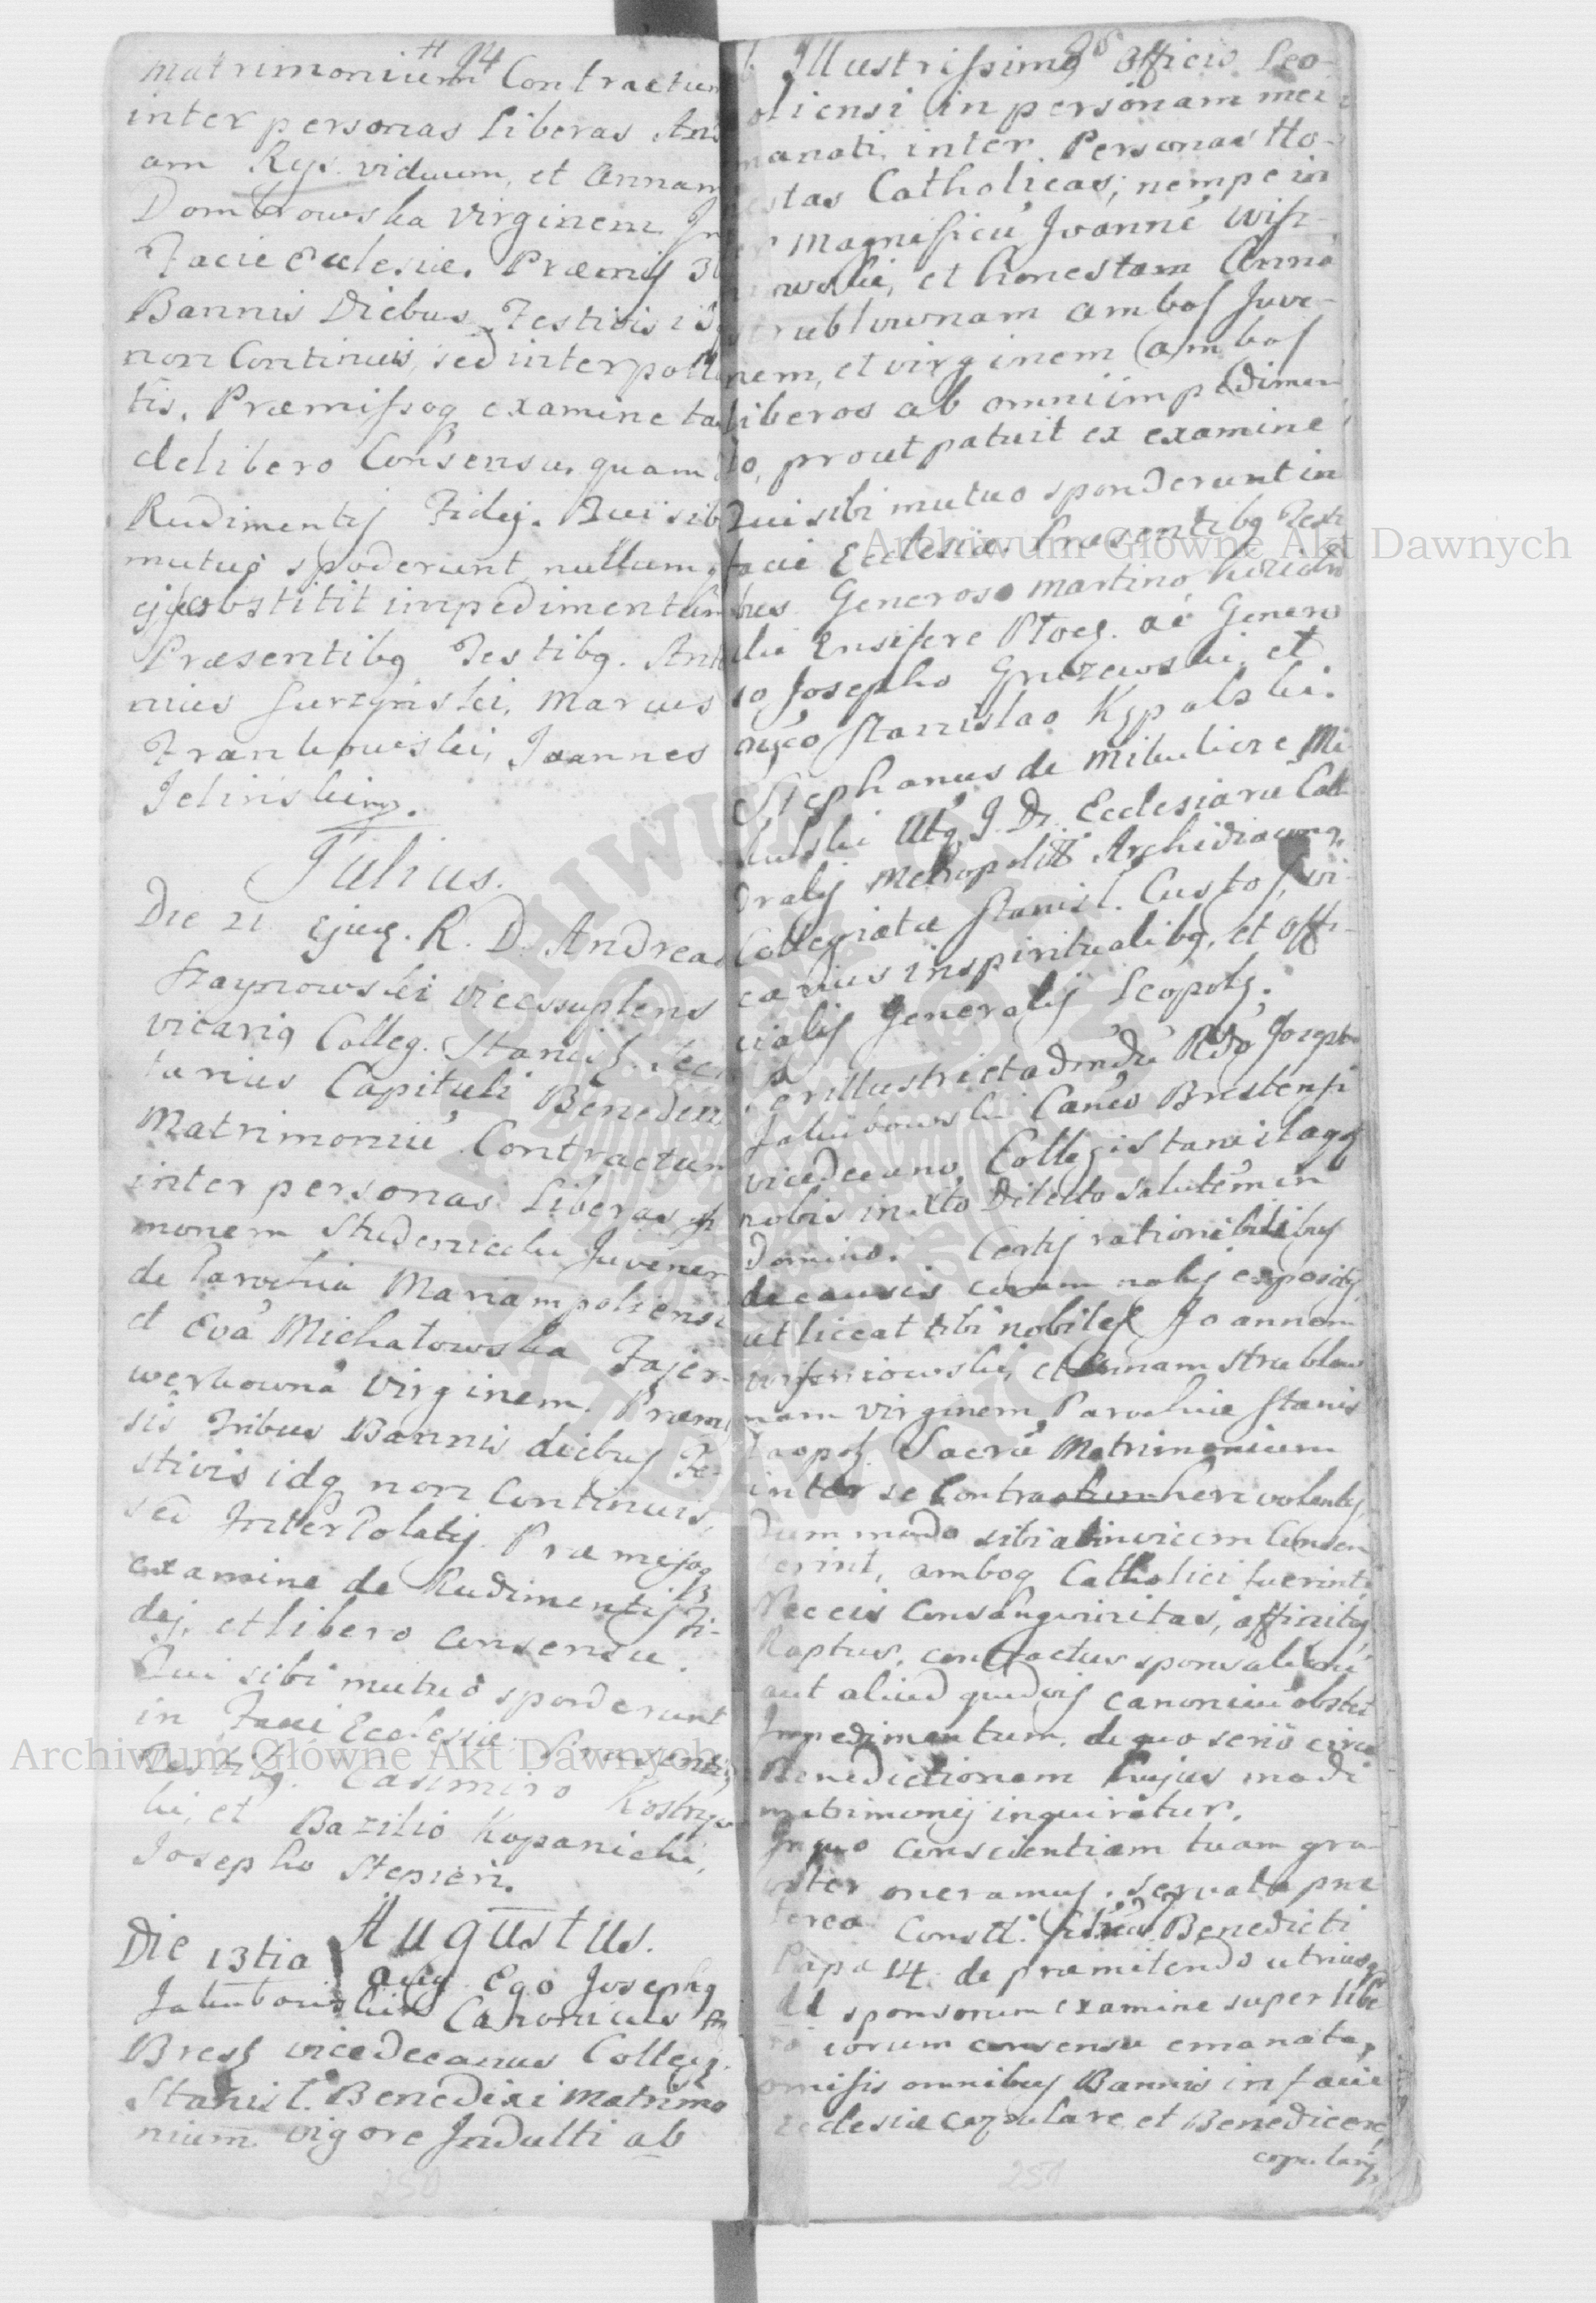 94
matrimonium Contractum
inter personas liberas
am Rys. viduum, et Annam
Dombrowska virginem In
Facie Ecclesiæ. Præmis 3
Bannis Diebus Festivis
non Continuis, sed interpolla
tis. Præmissoq examine ta
delibero Consensu, quam
Rudimentis Fidej. Qui sib
mutuo spoderunt nullum
obstitit impedimentum
Præsentibq Testibq. Anto
nius Surzynski, Marcus
Frankowski, Joannes
Jelinski
Julius.
Die 21 Ejuq. R. D. Andreas
Szaynowski vices supplens
vicariq Colleg. Stanisl. Sec
tarius Capituli Benedixi
Matrimoniu Contractum
inter personas Liberas Si
monem Studenicki Juvenem
de Parochia Mariampoliensi
et Eva Michałowska Fajer-
werkowna Virginem. Præmis
sis Tribus Bannis diebus Fe-
stivis idq non Continuis,
sed InterPolatis. Præmissoq
examine de Rudimentis Fi-
dej, et libero consensu.
Qui sibi mutuo sponderunt
in Facie Ecclesiæ Præsentibq
Testibq. Casimiro
ki, et Bazilio Kopanicki,
Josepho Stepien.
Augustus.
Die 13tia aug Ego Josephq
Jakubowski Canonicus
Bresz vicedecanus Colleg.
Stanisl. Benedixi matrimo
nium vigore Indulti ab
250
95
Illustrissimo Officio Leo-
oliensi in personam mei
manati, inter Personas Ho-
estas Catholicas; nempe in
Magnificu Joanne Wisz-
iowski, et honestam Anna
trublownam ambos Juve-
nem, et virginem ambos
liberos ab omni impedimen
to, prout patuit ex examine
Qui sibi mutuo sponderunt in
facie Ecclesiæ. Præsentibq Testi
bus Generoso Martino
Ensifere Płocz. ac Genero
so Josepho Gruzewski et
Stanislao Kypalski.
Stephanus de Mikulicze Mi
kulski Utq J. Dr. Ecclesiaru Cath
dralis Metropolit Archidiaconq,
Collegiatæ Stanisl. Custos, vi-
carius in spiritualibq, et offi-
cialis Generalis Leopolz.
Perillustri et adm Rdo Joseph
Jakubowski Canco Brestensi
vicedecano Collegi Stanislaoq
nobis in Xto Dilecto salutem in
Domino. Certis rationibilibus
de causis coram nobis expositis,
ut liceat tibi nobiles Joannem
wiszniowski, et Annam strublow
nam virginem Parochiæ Stanis
laopolz. Sacru Matrimonium
inter se Contrahere volentes,
Dummodo sibi ad invicem Consen
serint, amboq Catholici fuerint,
Nec eis consanguinitas, affinitas,
Raptus, contractus sponsaliru
aut aliud quodvis canonicu obstet
Impedimentum, de quo serio circa
Benedictionem hujus modi
matrimonij inquiratur.
In quo conscientiam tuam gra-
viter oneramus. servata præ
terea Constt. Benedicti
Papæ 14. de præmitendo utriusq
sponsorum examine super libe
ro eorum consensu emanata,
omissis omnibus Bannis in facie
Ecclesiæ copulare et Benedicere
copularis
251
Archiwum Główne Akt Dawnych
Archiwum Główne Akt Dawnych